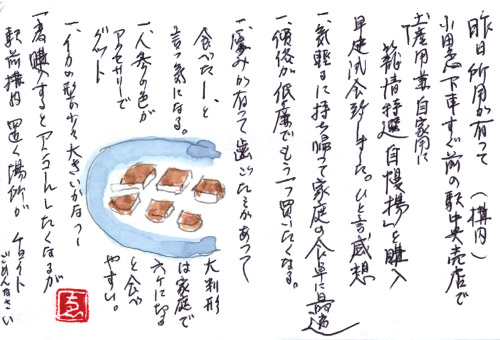 昨日所用が有って (構内)
小田急下車すぐ前の駅中央売店で
土産用兼自家用に
籠清特選"自慢揚"を購入
早速試食会致しました。ひと言感想
一、気軽に持ち帰って家庭の食卓に最適
一、価格が低廉でもう一つ買いたくなる。
一、厚みが有って歯ごたえがあって
食べたーい、と
言う気になる。
一、人参の色が
アクセサリーで
グット
一、イカの型が少々大きいかなァ〜
一度購入するとアンコールしたくなるが
駅前構内 置く場所が
大判形
は家庭で
六ケになる
と食べ
やすい。
ごめんなさい
ゑ